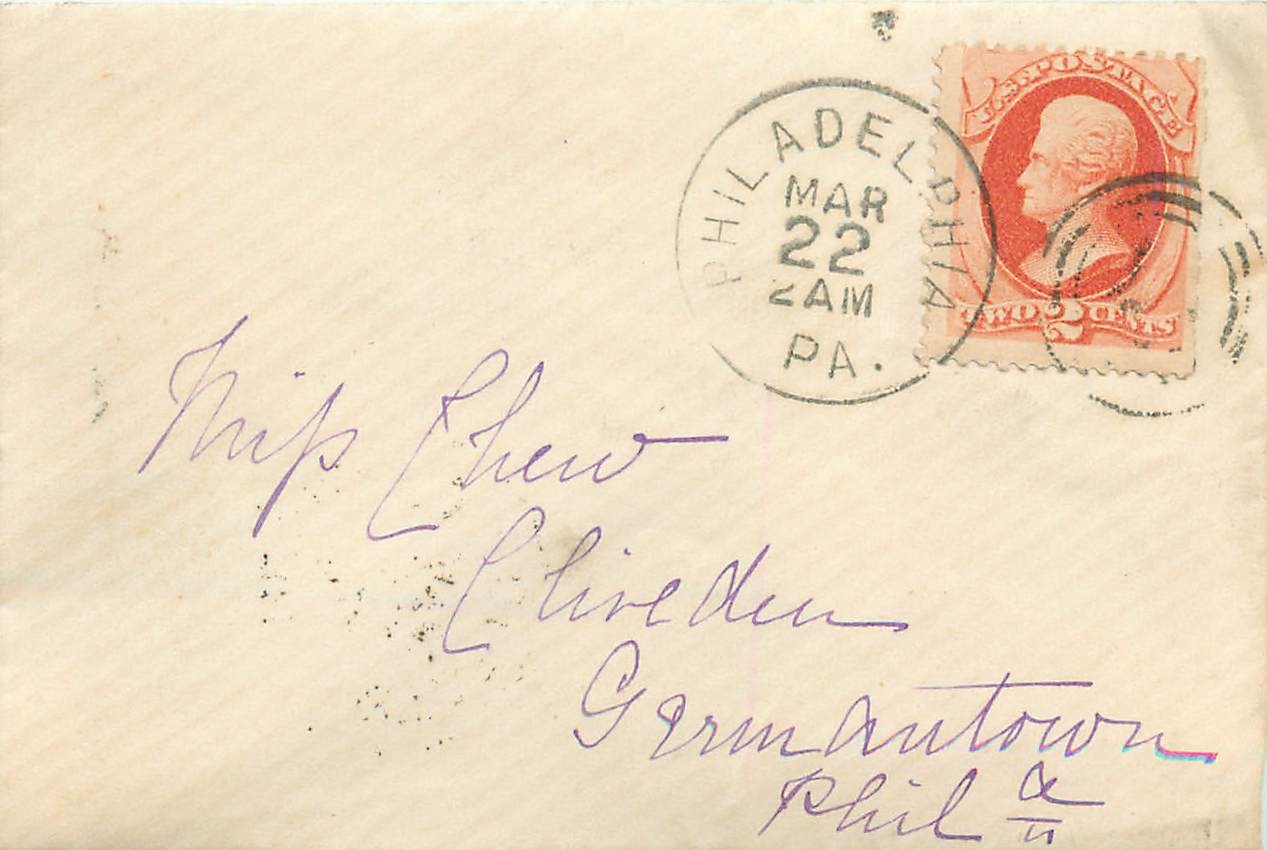 U.S. POSTAGE
TWO 2 CENTS
PHILADELPHIA
MAR
22
2 AM
PA.
Miss Chew
Cliveden
Germantown
Phila